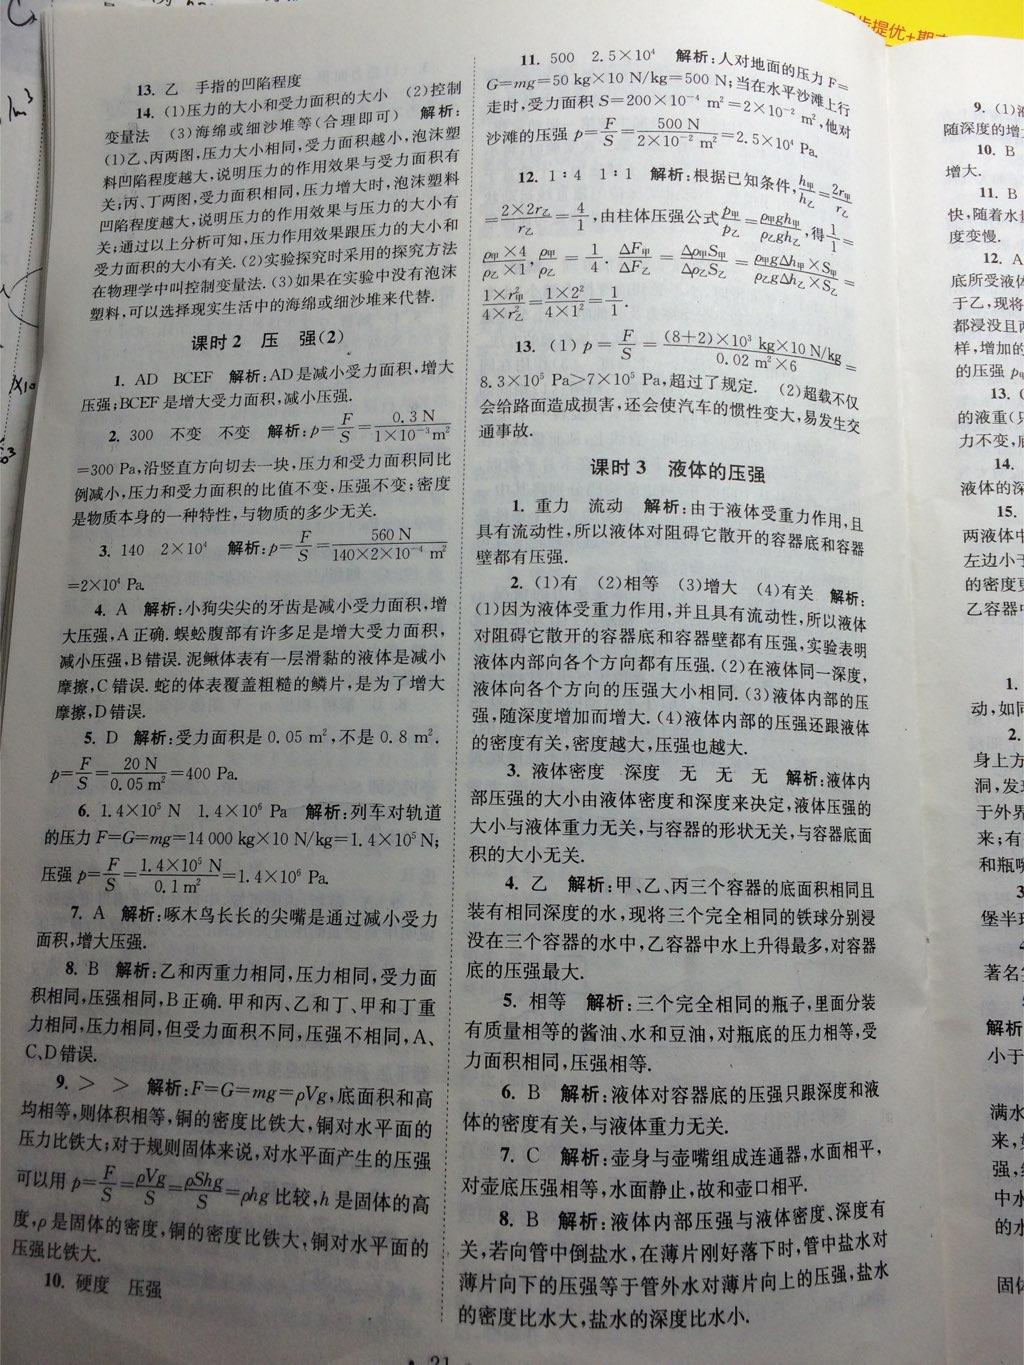 13. 乙　手指的凹陷程度
14. (1)压力的大小和受力面积的大小　(2)控制
变量法　(3)海绵或细沙堆等(合理即可)　解析:
(1)乙、丙两图,压力大小相同,受力面积越小,泡沫塑
料凹陷程度越大,说明压力的作用效果与受力面积有
关;丙、丁两图,受力面积相同,压力增大时,泡沫塑料
凹陷程度越大,说明压力的作用效果与压力的大小有
关;通过以上分析可知,压力作用效果跟压力的大小和
受力面积的大小有关.(2)实验探究时采用的探究方法
在物理学中叫控制变量法.(3)如果在实验中没有泡沫
塑料,可以选择现实生活中的海绵或细沙堆来代替.
课时2　压　强(2)
1. AD　BCEF　解析:AD是减小受力面积,增大
压强;BCEF是增大受力面积,减小压强.
2. 300　不变　不变　解析:p=F/S=0.3 N/1×10⁻³m²
=300 Pa,沿竖直方向切去一块,压力和受力面积同比
例减小,压力和受力面积的比值不变,压强不变;密度
是物质本身的一种特性,与物质的多少无关.
3. 140　2×10⁴　解析:p=F/S=560 N/140×2×10⁻⁴ m²
=2×10⁴ Pa.
4. A　解析:小狗尖尖的牙齿是减小受力面积,增
大压强,A正确.蜈蚣腹部有许多足是增大受力面积,
减小压强,B错误.泥鳅体表有一层滑黏的液体是减小
摩擦,C错误.蛇的体表覆盖粗糙的鳞片,是为了增大
摩擦,D错误.
5. D　解析:受力面积是0.05 m²,不是0.8 m².
p=F/S=20 N/0.05 m²=400 Pa.
6. 1.4×10⁵ N　1.4×10⁶ Pa　解析:列车对轨道
的压力F=G=mg=14 000 kg×10 N/kg=1.4×10⁵ N;
压强p=F/S=1.4×10⁵ N/0.1 m²=1.4×10⁶ Pa.
7. A　解析:啄木鸟长长的尖嘴是通过减小受力
面积,增大压强.
8. B　解析:乙和丙重力相同,压力相同,受力面
积相同,压强相同,B正确.甲和丙、乙和丁、甲和丁重
力相同,压力相同,但受力面积不同,压强不相同,A、
C、D错误.
9. ＞　＞　解析:F=G=mg=ρVg,底面积和高
均相等,则体积相等,铜的密度比铁大,铜对水平面的
压力比铁大;对于规则固体来说,对水平面产生的压强
可以用p=F/S=ρVg/S=ρShg/S=ρhg比较,h是固体的高
度,ρ是固体的密度,铜的密度比铁大,铜对水平面的
压强比铁大.
10. 硬度　压强
11. 500　2.5×10⁴　解析:人对地面的压力F=
G=mg=50 kg×10 N/kg=500 N;当在水平沙滩上行
走时,受力面积S=200×10⁻⁴ m²=2×10⁻² m²,他对
沙滩的压强p=F/S=500 N/2×10⁻² m²=2.5×10⁴ Pa.
12. 1∶4　1∶1　解析:根据已知条件,h甲/h乙=2r甲/r乙
=2×2r乙/r乙=4/1,由柱体压强公式p甲/p乙=ρ甲gh甲/ρ乙gh乙,得1/1=
ρ甲×4/ρ乙×1,ρ甲/ρ乙=1/4.ΔF甲/ΔF乙=Δp甲S甲/Δp乙S乙=ρ甲gΔh甲×S甲/ρ乙gΔh乙×S乙=
1×r甲²/4×r乙²=1×2²/4×1²=1/1.
13. (1)p=F/S=(8+2)×10³ kg×10 N/kg/0.02 m²×6=
8.3×10⁵ Pa＞7×10⁵ Pa,超过了规定.　(2)超载不仅
会给路面造成损害,还会使汽车的惯性变大,易发生交
通事故.
课时3　液体的压强
1. 重力　流动　解析:由于液体受重力作用,且
具有流动性,所以液体对阻碍它散开的容器底和容器
壁都有压强.
2. (1)有　(2)相等　(3)增大　(4)有关　解析:
(1)因为液体受重力作用,并且具有流动性,所以液体
对阻碍它散开的容器底和容器壁都有压强,实验表明
液体内部向各个方向都有压强.(2)在液体同一深度,
液体向各个方向的压强大小相同.(3)液体内部的压
强,随深度增加而增大.(4)液体内部的压强还跟液体
的密度有关,密度越大,压强也越大.
3. 液体密度　深度　无　无　无　解析:液体内
部压强的大小由液体密度和深度来决定,液体压强的
大小与液体重力无关,与容器的形状无关,与容器底面
积的大小无关.
4. 乙　解析:甲、乙、丙三个容器的底面积相同且
装有相同深度的水,现将三个完全相同的铁球分别浸
没在三个容器的水中,乙容器中水上升得最多,对容器
底的压强最大.
5. 相等　解析:三个完全相同的瓶子,里面分装
有质量相等的酱油、水和豆油,对瓶底的压力相等,受
力面积相同,压强相等.
6. B　解析:液体对容器底的压强只跟深度和液
体的密度有关,与液体重力无关.
7. C　解析:壶身与壶嘴组成连通器,水面相平,
对壶底压强相等,水面静止,故和壶口相平.
8. B　解析:液体内部压强与液体密度、深度有
关,若向管中倒盐水,在薄片刚好落下时,管中盐水对
薄片向下的压强等于管外水对薄片向上的压强,盐水
的密度比水大,盐水的深度比水小.
21
步提优+期
9. (1)
随深度的增
10. B
增大.
11. B
快,随着水
度变慢.
12. A
底所受液体
于乙,现将
都浸没且
样,增加的
的压强
13.
的液重(只
力不变,
14.
液体的深
15.
两液体中
左边小于
的密度
乙容器
1.
动,如同
2.
身上方
洞,发
于外界
来;有
和瓶
3
堡半
4
著名
解析
小于
满水
来,
强,
中水
的水
固体